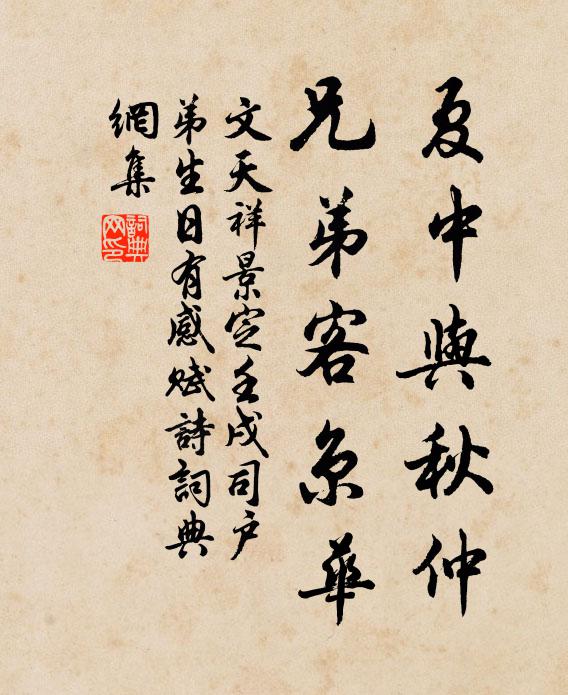 夏中與秋仲
兄弟客京華
文天祥景定壬戌司户
弟生日有感賦詩詞典
網集
詞典網印